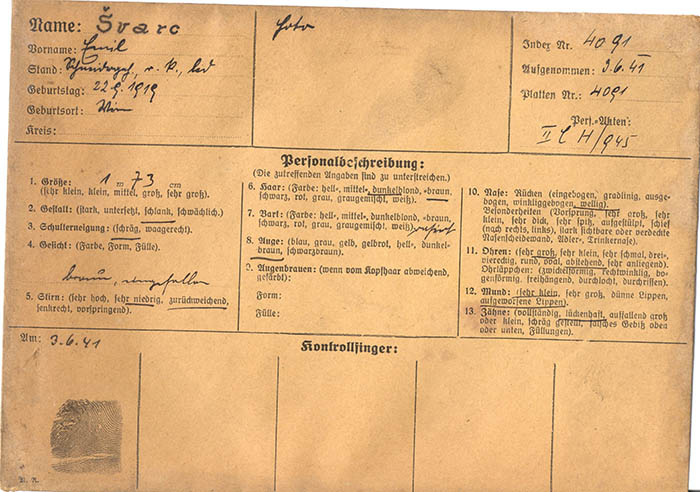 Name: Švarc
Vorname: Emil
Stand: Schneidergeh., r. k., led
Geburtstag: 22.9.1919
Geburtsort: Wien
Kreis:
Foto
Index Nr. 4091
Aufgenommen: 3.6.41
Platten Nr.: 4091
Pers.-Akten:
II C H/945
Personalbeschreibung:
(Die zutreffenden Angaben sind zu unterstreichen.)
1. Größe: 1 m 73 cm
(sehr klein, klein, mittel, groß, sehr groß).
2. Gestalt: (stark, untersetzt, schlank, schwächlich.)
3. Schulterneigung: (schräg, waagerecht).
4. Gesicht: (Farbe, Form, Fülle).
braun, eingefallen
5. Stirn: (sehr hoch, sehr niedrig, zurückweichend,
senkrecht, vorspringend).
6. Haar: (Farbe: hell-, mittel-, dunkelblond, -braun,
schwarz, rot, grau, graugemischt, weiß).
7. Bart: (Farbe: hell-, mittel-, dunkelblond, -braun,
schwarz, rot, grau, graugemischt, weiß). rasiert
8. Auge: (blau, grau, gelb, gelbrot, hell-, dunkel-
braun, schwarzbraun).
9. Augenbrauen: (wenn vom Kopfhaar abweichend,
gefärbt):
Form:
Fülle:
10. Nase: Rücken (eingebogen, gradlinig, ausge-
bogen, winkliggebogen, wellig).
Besonderheiten (Vorsprung, sehr groß, sehr
klein, sehr dick, sehr spitz, aufgestülpt, schief
(nach rechts, links), stark sichtbare oder verdeckte
Nasenscheidewand, Adler-, Trinkernase).
11. Ohren: (sehr groß, sehr klein, sehr schmal, drei-
viereckig, rund, oval, abstehend, sehr anliegend).
Ohrläppchen: (zwickelförmig, rechtwinkig, bo-
genförmig, freihängend, durchlocht, durchrissen).
12. Mund: (sehr klein, sehr groß, dünne Lippen,
aufgeworfene Lippen).
13. Zähne: (vollständig, lückenhaft, auffallend groß
oder klein, schräg gestellt, falsches Gebiß oben
oder unten, Füllungen).
Am: 3.6.41
Kontrollfinger: